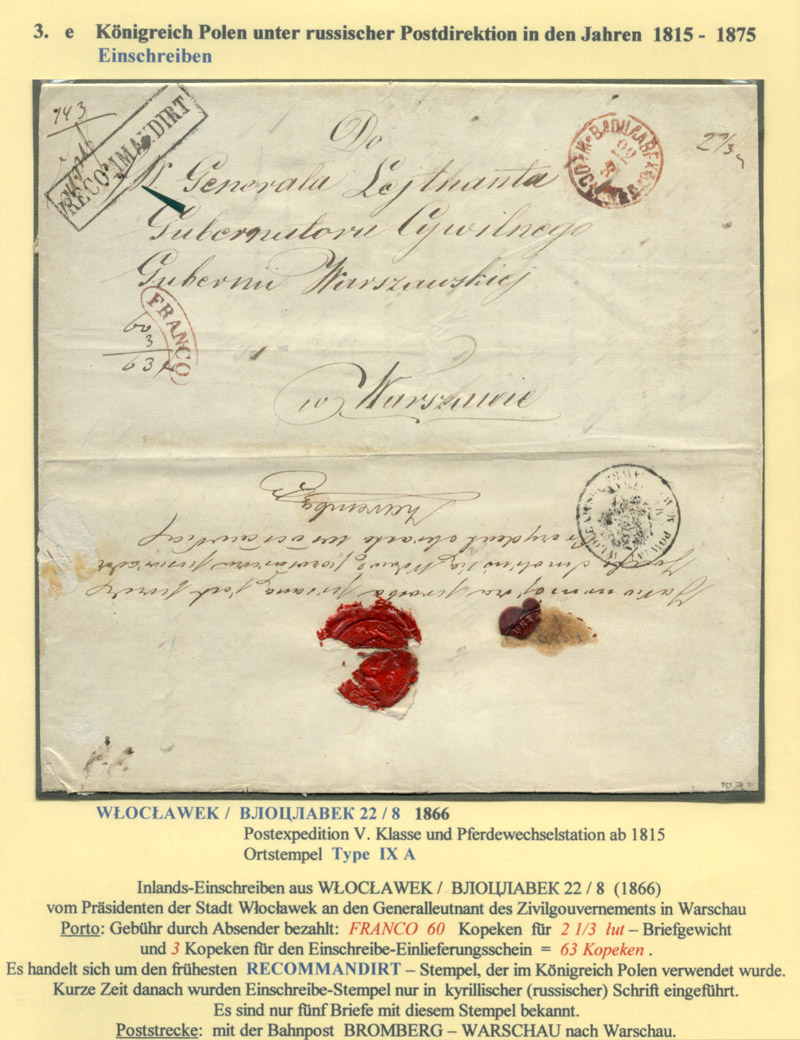 3. e Königreich Polen unter russischer Postdirektion in den Jahren 1815 - 1875
Einschreiben
743
RECOMMANDIRT
Do
Generała Lejtnanta
Gubernatora Cywilnego
Guberni Warszawskiej
FRANCO
60
3
63
w Warszawie
WŁOCŁAWEK / ВЛОЦЛАВЕК 22 / 8 1866
Postexpedition V. Klasse und Pferdewechselstation ab 1815
Ortstempel Type IX A
Inlands-Einschreiben aus WŁOCŁAWEK / ВЛОЦЛАВЕК 22 / 8 (1866)
vom Präsidenten der Stadt Włocławek an den Generalleutnant des Zivilgouvernements in Warschau
Porto: Gebühr durch Absender bezahlt: FRANCO 60 Kopeken für 2 1/3 lut – Briefgewicht
und 3 Kopeken für den Einschreibe-Einlieferungsschein = 63 Kopeken .
Es handelt sich um den frühesten RECOMMANDIRT – Stempel, der im Königreich Polen verwendet wurde.
Kurze Zeit danach wurden Einschreibe-Stempel nur in kyrillischer (russischer) Schrift eingeführt.
Es sind nur fünf Briefe mit diesem Stempel bekannt.
Poststrecke: mit der Bahnpost BROMBERG – WARSCHAU nach Warschau.